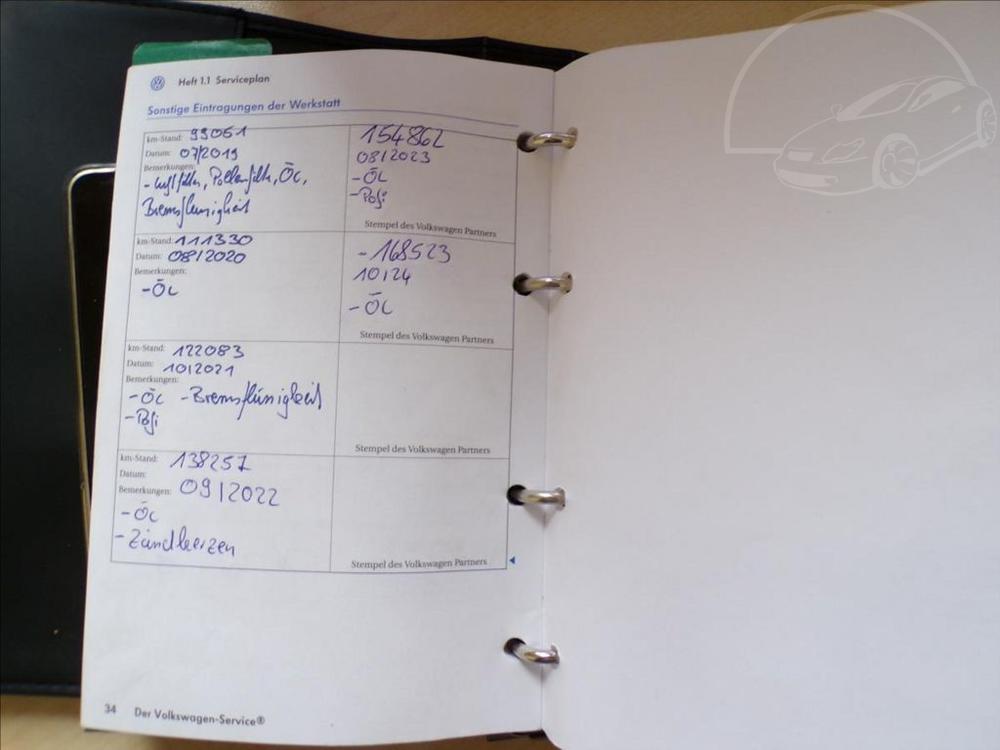 Heft 1.1 Serviceplan
Sonstige Eintragungen der Werkstatt
km-Stand: 99051
Datum: 07/2019
Bemerkungen:
- Luftfilter, Pollenfilter, ÖL,
Bremsflüssigkeit
154862
08/2023
- ÖL
Stempel des Volkswagen Partners
km-Stand: 111330
Datum: 08/2020
Bemerkungen:
- ÖL
- 168523
10/24
- ÖL
Stempel des Volkswagen Partners
km-Stand: 122083
Datum: 10/2021
Bemerkungen:
- ÖL - Bremsflüssigkeit
Stempel des Volkswagen Partners
km-Stand: 138257
Datum:
Bemerkungen: 09/2022
- ÖL
- Zündkerzen
Stempel des Volkswagen Partners
34 Der Volkswagen-Service®